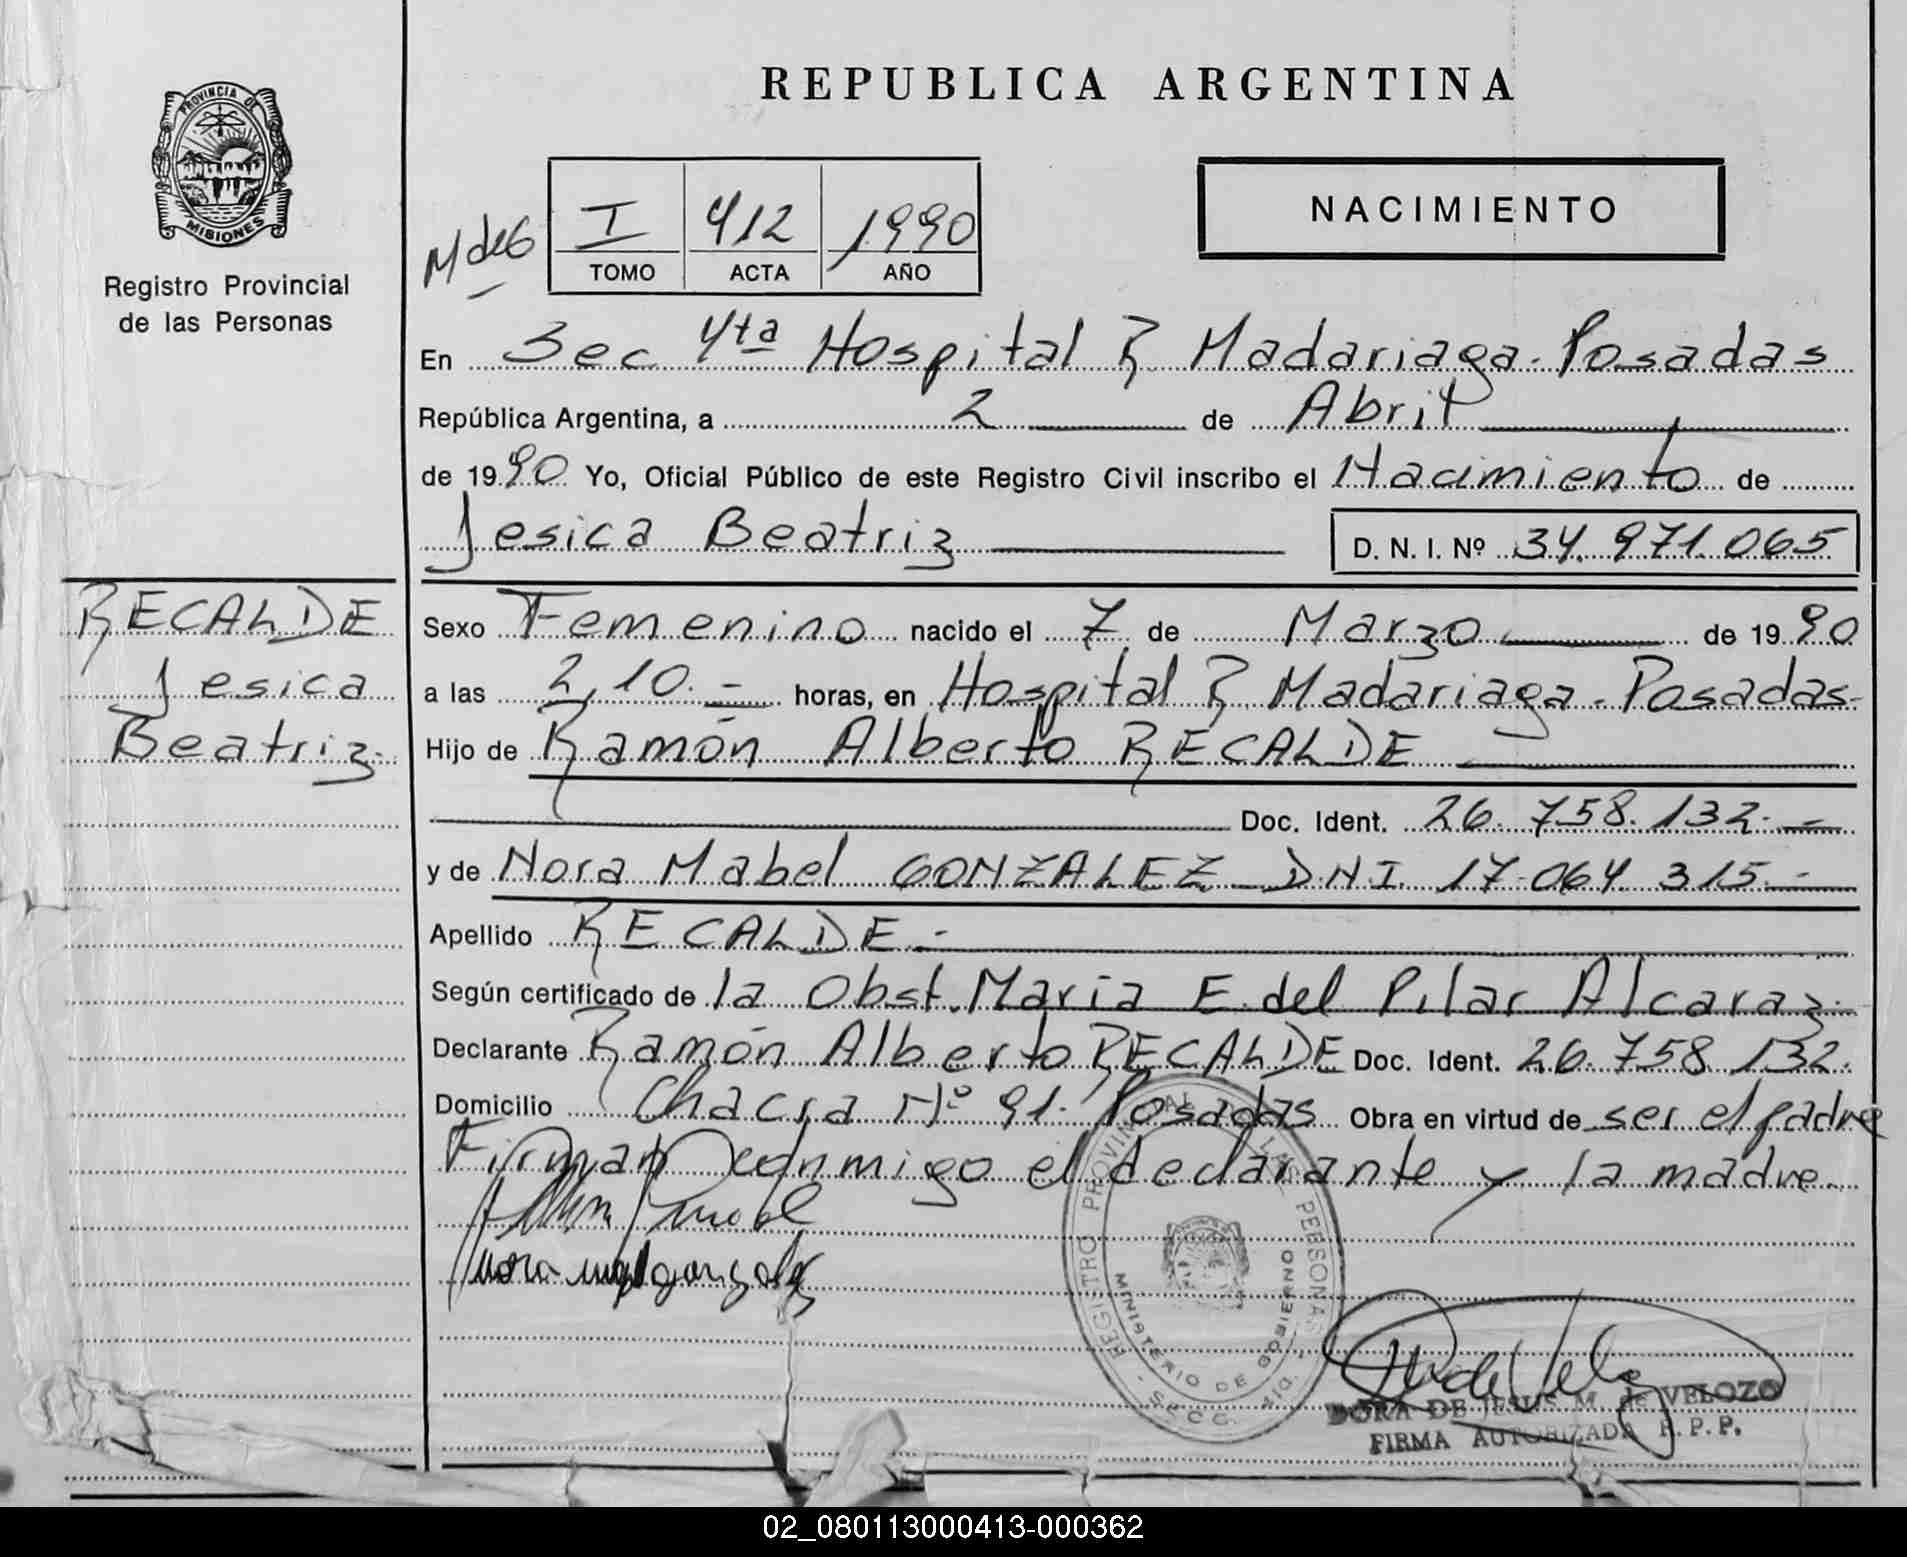 REPUBLICA ARGENTINA
PROVINCIA DE
MISIONES
Registro Provincial
de las Personas
M de G
I 412 1990
TOMO ACTA AÑO
NACIMIENTO
En Sec 4ta Hospital R Madariaga-Posadas
República Argentina, a 2 de Abril
de 1990 Yo, Oficial Público de este Registro Civil inscribo el Nacimiento de
Jesica Beatriz D. N. I. Nº 34.971.065
RECALDE
Jesica
Beatriz.
Sexo Femenino nacido el 7 de Marzo de 1990
a las 2,10.- horas, en Hospital R. Madariaga-Posadas-
Hijo de Ramón Alberto RECALDE
Doc. Ident. 26.758.132.-
y de Nora Mabel GONZALEZ DNI 17.064.315.-
Apellido RECALDE.-
Según certificado de la Obst. Maria E. del Pilar Alcaraz.
Declarante Ramón Alberto RECALDE Doc. Ident. 26.758.132.
Domicilio Chacra Nº 91. Posadas Obra en virtud de ser el padre
Firman conmigo el declarante y la madre.
REGISTRO PROVINCIAL DE LAS PERSONAS
MINISTERIO DE GOBIERNO
DORA DE JESUS M. de VELOZO
FIRMA AUTORIZADA R.P.P.
02_080113000413-000362